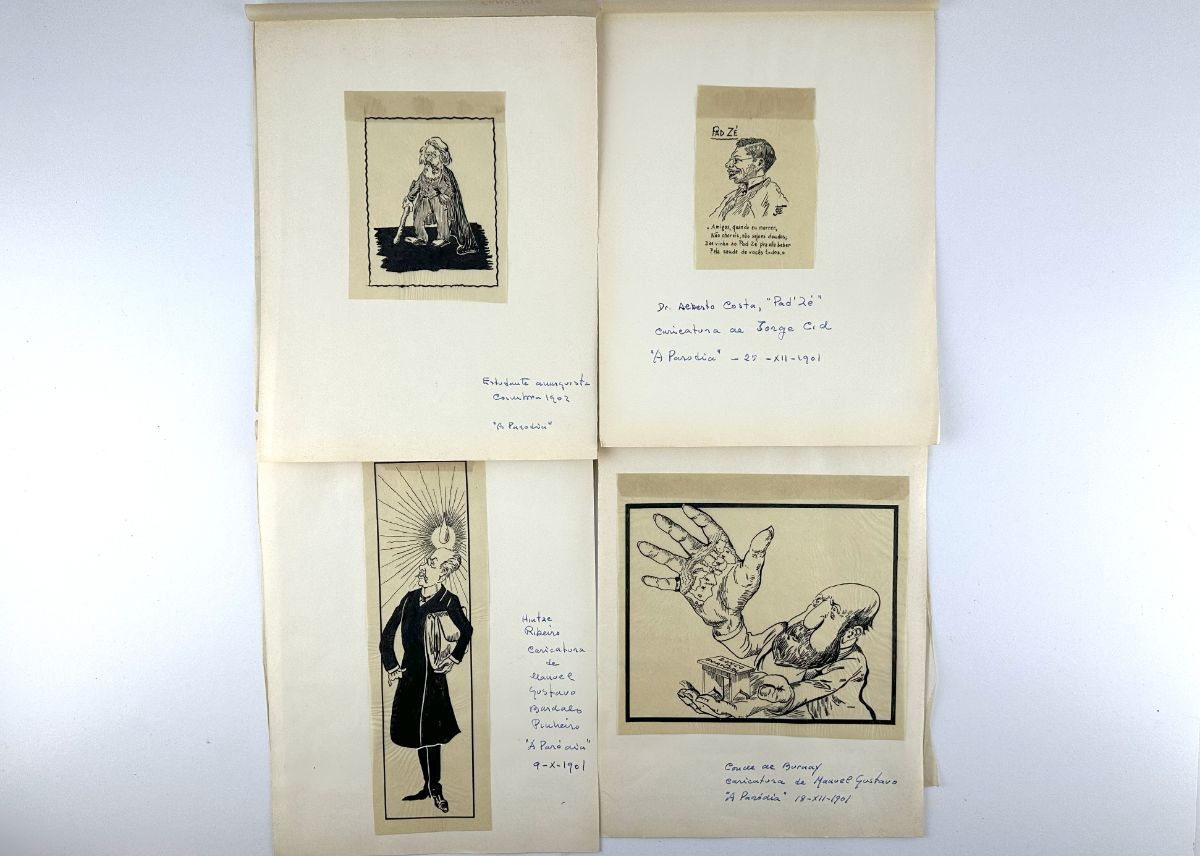 Estudante anarquista
Coimbra 1902
"A Paródia"
PAD ZÉ
Amigos, quando eu morrer,
Não choreis, não sejaes doudos;
Dae vinho ao Pad Zé pra elle beber
Pela saude de vocês todos.
Dr. Alberto Costa, "Pad'Zé"
caricatura de Jorge Cid
"A Paródia" - 25 -XII-1901
Hintze
Ribeiro
caricatura
de
Manuel
Gustavo
Bordalo
Pinheiro
"A Paródia"
9-X-1901
Conde de Burnay
caricatura de Manuel Gustavo
"A Paródia" 18-XII-1901